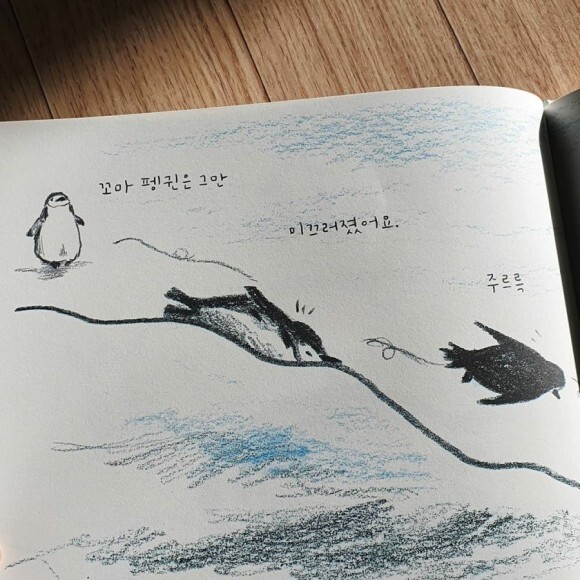 꼬마 펭귄은 그만
미끄러졌어요.
주르륵